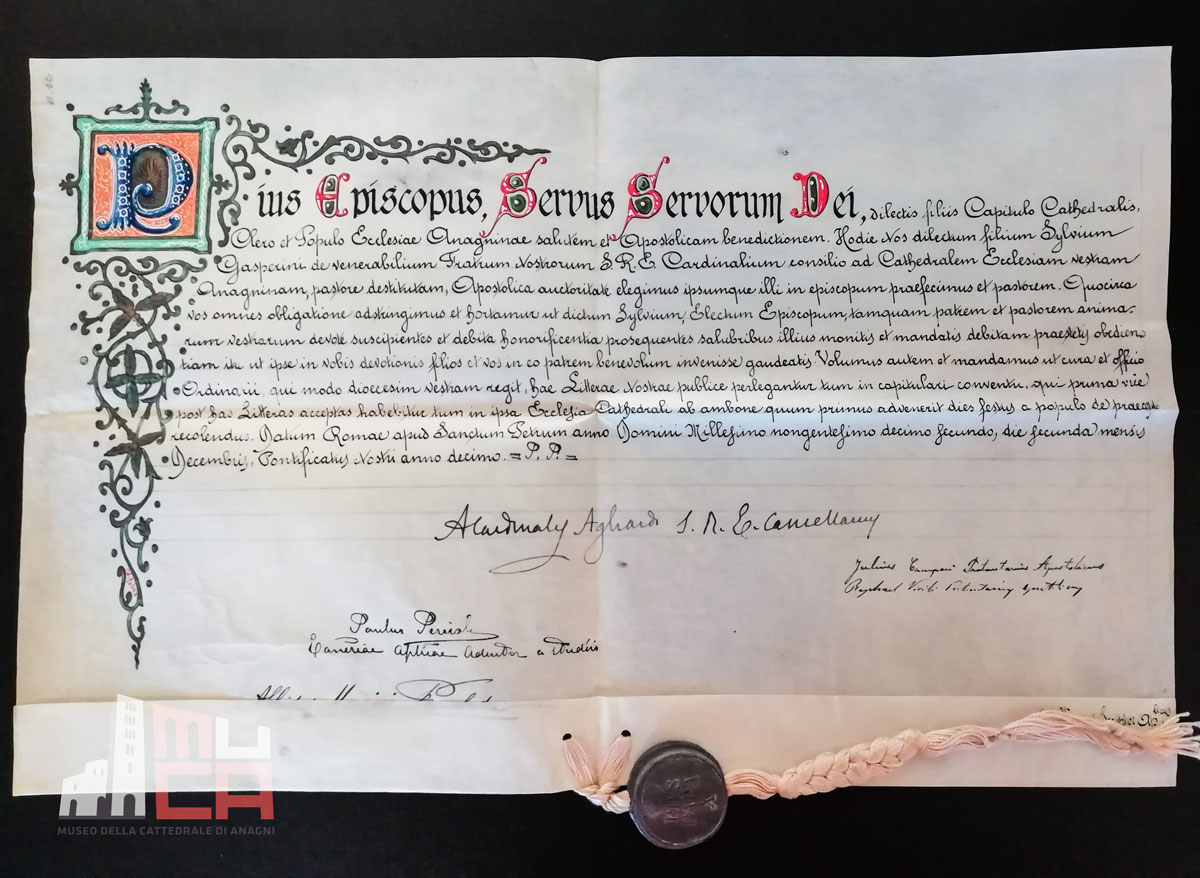 Pius Episcopus, Servus Servorum Dei, dilectis filiis Capitulo Cathedralis,
Clero et Populo Ecclesiae Anagninae salutem et Apostolicam benedictionem. Hodie Nos dilectum filium Sylvium
Gasperini de venerabilium Fratrum Nostrorum S. R. E. Cardinalium consilio ad Cathedralem Ecclesiam vestram
Anagninam, pastore destitutam, Apostolica auctoritate elegimus ipsumque illi in episcopum praefecimus et pastorem. Quocirca
vos omnes obligatione adstringimus et hortamur ut dictum Sylvium, Electum Episcopum, tamquam patrem et pastorem anima-
rum vestrarum devote suscipientes et debita honorificentia prosequentes salubribus illius monitis et mandatis debitam praestetis obedien
tiam ita ut ipse in vobis devotionis filios et vos in eo patrem benevolum invenisse gaudeatis. Volumus autem et mandamus ut cura et officio
Ordinarii, qui modo dioecesim vestram regit, hae Litterae Nostrae publice perlegantur tum in capitulari conventu, qui prima vice
post has Litteras acceptas habebitur tum in ipsa Ecclesia Cathedrali ab ambone quum primus advenerit dies festus a populo de praecepto
recolendus. Datum Romae apud Sanctum Petrum anno Domini Millesimo nongentesimo decimo secundo, die secunda mensis
Decembris, Pontificatus Nostri anno decimo. = P. P. =
A Cardinalis Agliardi S. R. E. Cancellarius
Julius Campori Protonotarius Apostolicus
Raphael Virili
Paulus
a studiis
MUCA
MUSEO DELLA CATTEDRALE DI ANAGNI